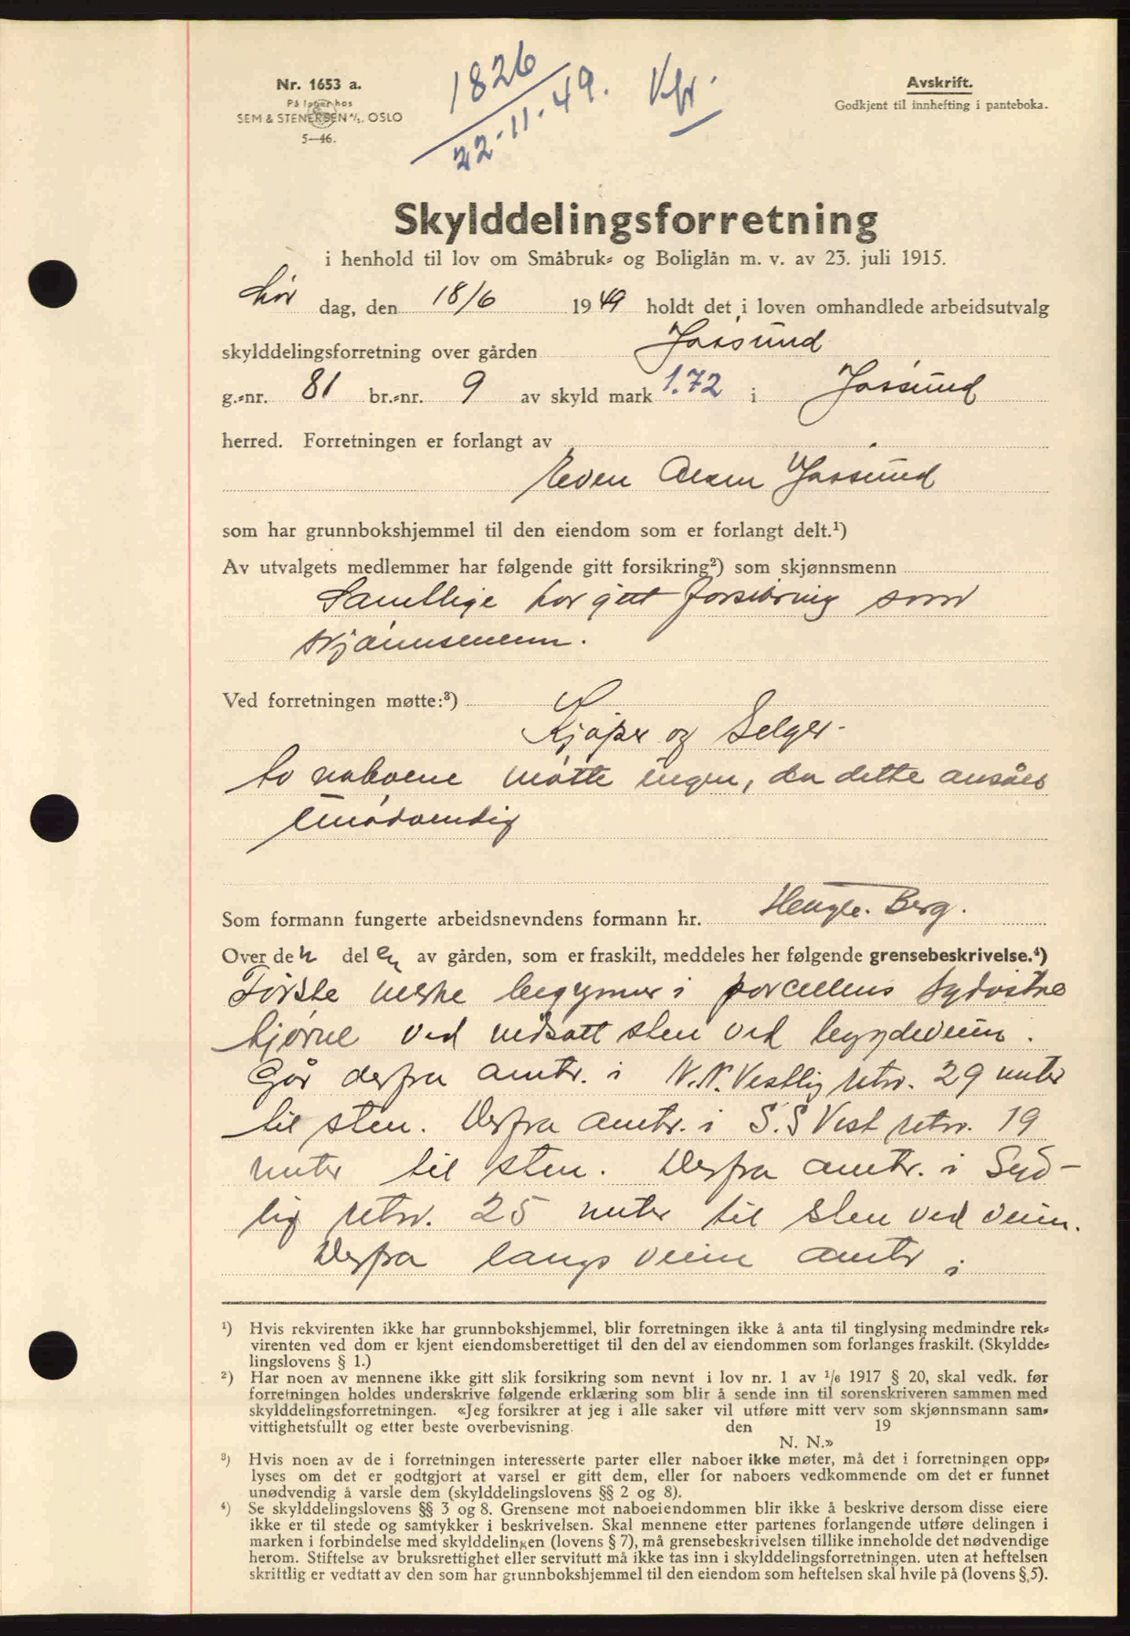 Nr. 1653 a.
På lager hos
SEM & STENERSEN A/S, OSLO
5—46.
1826
22-11-49.
Avskrift.
Godkjent til innhefting i panteboka.
Skylddelingsforretning
i henhold til lov om Småbruk- og Boliglån m. v. av 23. juli 1915.
Lør dag, den 18/6 1949 holdt det i loven omhandlede arbeidsutvalg
skylddelingsforretning over gården Jøssund
g.-nr. 81 br.-nr. 9 av skyld mark 1.72 i Jøssund
herred. Forretningen er forlangt av
Even Olsen Jøssund
som har grunnbokshjemmel til den eiendom som er forlangt delt.¹)
Av utvalgets medlemmer har følgende gitt forsikring²) som skjønnsmenn
Samtlige har gitt forsikring som
skjønnsmenn.
Ved forretningen møtte:³)
Kjøper og Selger.
av naboene møtte ingen, da dette ansåes
unødvendig
Som formann fungerte arbeidsnevndens formann hr. Berg.
Over den delen av gården, som er fraskilt, meddeles her følgende grensebeskrivelse.⁴)
Første merke begynner i porcellens sydøstre
hjørne ved nedsatt sten ved bygdeveien.
Går derfra omtr. i N.N. Vestlig retn. 29 meter
til sten. Derfra omtr. i S.S Vest retn. 19
meter til sten. Derfra omtr. i Syd-
lig retn. 25 meter til sten ved veien.
Derfra langs veien omtr i
¹) Hvis rekvirenten ikke har grunnbokshjemmel, blir forretningen ikke å anta til tinglysing medmindre rek-
virenten ved dom er kjent eiendomsberettiget til den del av eiendommen som forlanges fraskilt. (Skyldde-
lingslovens § 1.)
²) Har noen av mennene ikke gitt slik forsikring som nevnt i lov nr. 1 av 1/6 1917 § 20, skal vedk. før
forretningen holdes underskrive følgende erklæring som blir å sende inn til sorenskriveren sammen med
skylddelingsforretningen. «Jeg forsikrer at jeg i alle saker vil utføre mitt verv som skjønnsmann sam-
vittighetsfullt og etter beste overbevisning. den 19
N. N.»
³) Hvis noen av de i forretningen interesserte parter eller naboer ikke møter, må det i forretningen opp-
lyses om det er godtgjort at varsel er gitt dem, eller for naboers vedkommende om det er funnet
unødvendig å varsle dem (skylddelingslovens §§ 2 og 8).
⁴) Se skylddelingslovens §§ 3 og 8. Grensene mot naboeiendommen blir ikke å beskrive dersom disse eiere
ikke er til stede og samtykker i beskrivelsen. Skal mennene etter partenes forlangende utføre delingen i
marken i forbindelse med skylddelingen (lovens § 7), må grensebeskrivelsen tillike inneholde det nødvendige
herom. Stiftelse av bruksrettighet eller servitutt må ikke tas inn i skylddelingsforretningen. uten at heftelsen
skriftlig er vedtatt av den som har grunnbokshjemmel til den eiendom som heftelsen skal hvile på (lovens § 5).